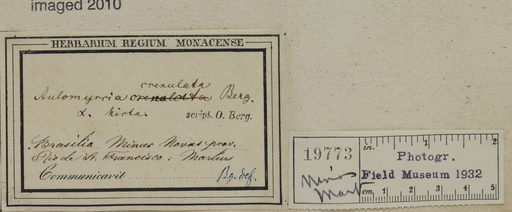 imaged 2010
HERBARIUM REGIUM MONACENSE
crenulata
Aulomyrcia crenulata Berg.
α. hirta. scrips. O. Berg.
Brasilia, Minas Novas prov.
Rio de S. Francisco: Martius
Communicavit Bg. def.
19773
in. 1 2
Photogr.
Field Museum 1932
cm. 1 2 3 4 5